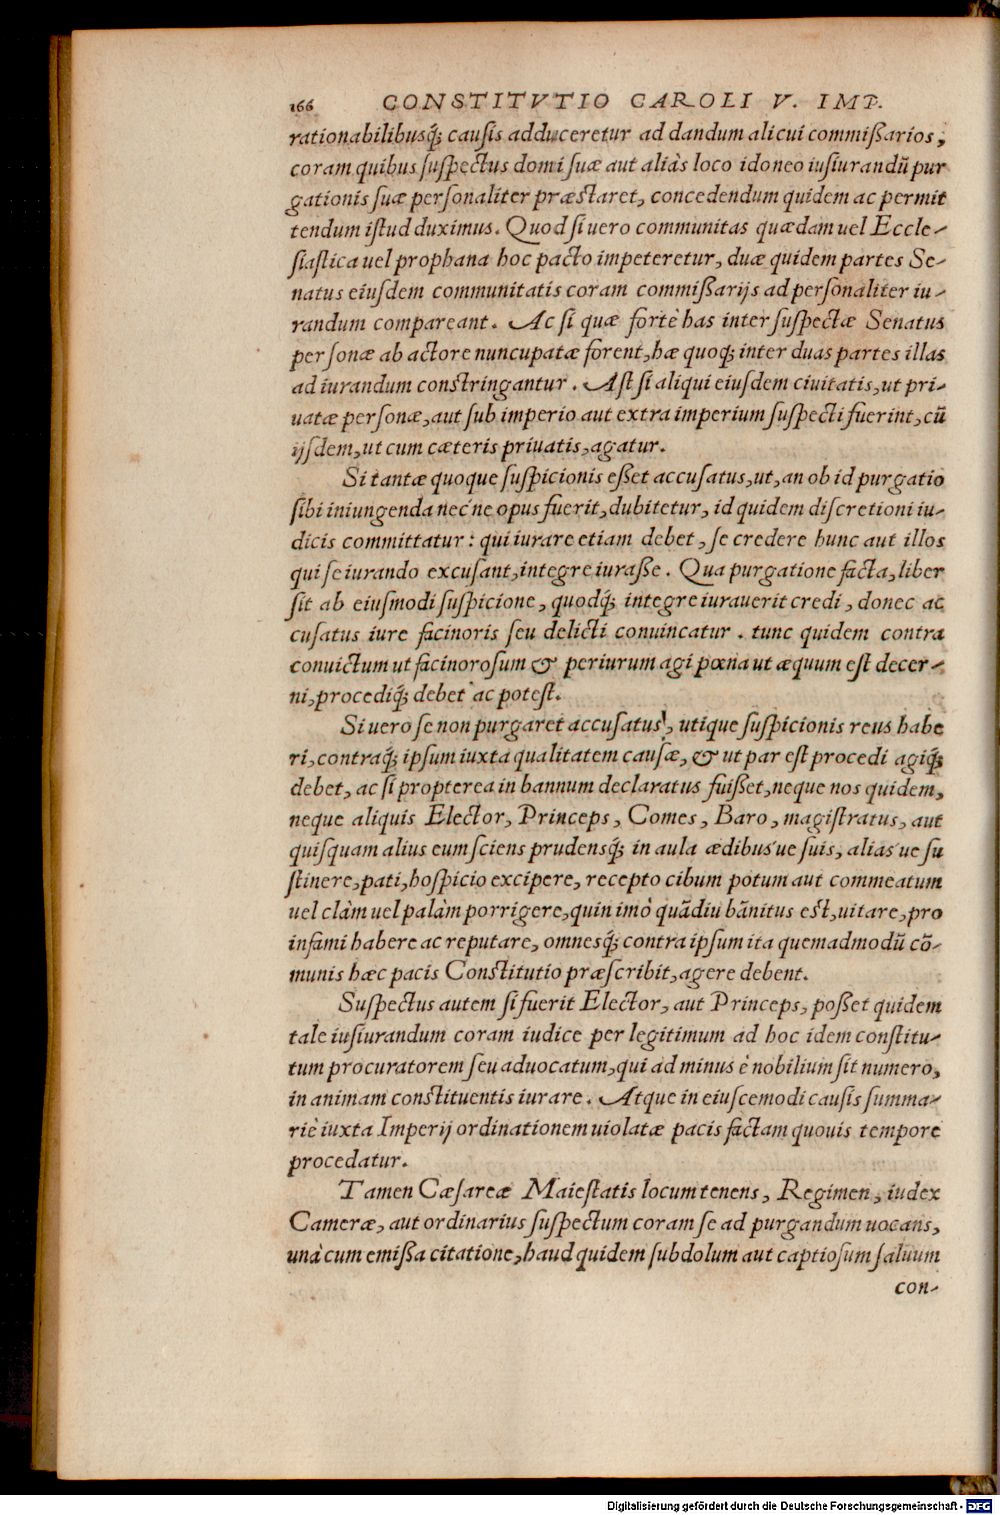 166 CONSTITVTIO CAROLI V. IMP.
rationabilibusq́; causis adduceretur ad dandum alicui commißarios,
coram quibus suspectus domi suæ aut aliàs loco idoneo iusiurandū pur
gationis suæ personaliter præstaret, concedendum quidem ac permit
tendum istud duximus. Quod si uero communitas quædam uel Eccle-
siastica uel prophana hoc pacto impeteretur, duæ quidem partes Se-
natus eiusdem communitatis coram commißarijs ad personaliter iu-
randum compareant. Ac si quæ fortè has inter suspectæ Senatus
personæ ab actore nuncupatæ forent, hæ quoq; inter duas partes illas
ad iurandum constringantur. Ast si aliqui eiusdem ciuitatis, ut pri-
uatæ personæ, aut sub imperio aut extra imperium suspecti fuerint, cū
ijsdem, ut cum cæteris priuatis, agatur.
Si tantæ quoque suspicionis eßet accusatus, ut, an ob id purgatio
sibi iniungenda nec'ne opus fuerit, dubitetur, id quidem discretioni iu-
dicis committatur: qui iurare etiam debet, se credere hunc aut illos
qui se iurando excusant, integre iuraße. Qua purgatione facta, liber
sit ab eiusmodi suspicione, quodq́; integre iurauerit credi, donec ac
cusatus iure facinoris seu delicti conuincatur. tunc quidem contra
conuictum ut facinorosum & periurum agi pœna ut æquum est decer-
ni, procediq́; debet ac potest.
Si uero se non purgaret accusatus, utique suspicionis reus habe
ri, contraq́; ipsum iuxta qualitatem causæ, & ut par est procedi agiq́;
debet, ac si propterea in bannum declaratus fuißet, neque nos quidem,
neque aliquis Elector, Princeps, Comes, Baro, magistratus, aut
quisquam alius eum sciens prudensq́; in aula ædibus'ue suis, alias'ue su
stinere, pati, hospicio excipere, recepto cibum potum aut commeatum
uel clàm uel palàm porrigere, quin imò quādiu bānitus est, uitare, pro
infami habere ac reputare, omnesq́; contra ipsum ita quemadmodū cō-
munis hæc pacis Constitutio præscribit, agere debent.
Suspectus autem si fuerit Elector, aut Princeps, poßet quidem
tale iusiurandum coram iudice per legitimum ad hoc idem constitu-
tum procuratorem seu aduocatum, qui ad minus è nobilium sit numero,
in animam constituentis iurare. Atque in eiuscemodi causis summa-
riè iuxta Imperij ordinationem uiolatæ pacis factam quouis tempore
procedatur.
Tamen Cæsareæ Maiestatis locum tenens, Regimen, iudex
Cameræ, aut ordinarius suspectum coram se ad purgandum uocans,
unà cum emißa citatione, haud quidem subdolum aut captiosum saluum
con-
Digitalisierung gefördert durch die Deutsche Forschungsgemeinschaft - DFG